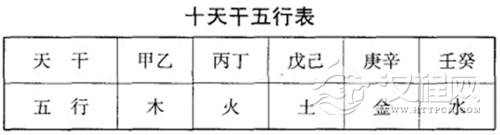 十天干五行表
天 干 甲乙 丙丁 戊己 庚辛 壬癸
五 行 木 火 土 金 水
汉程网
HTTPCN.COM